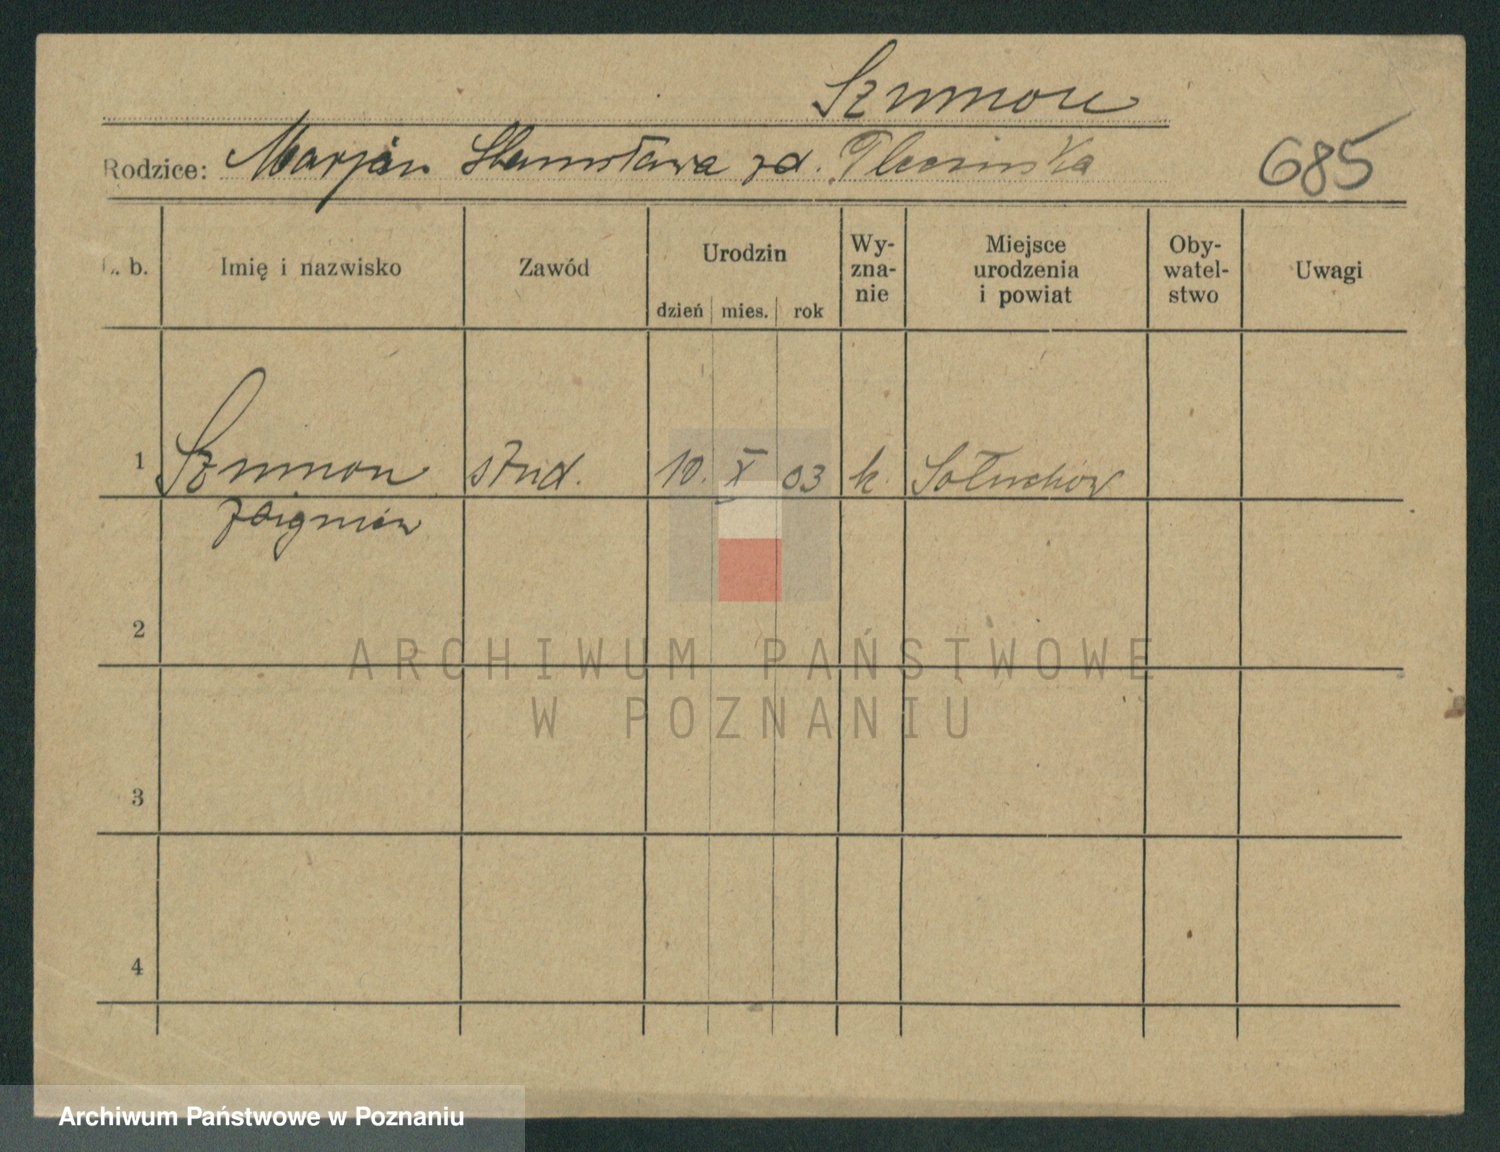 Szumon
Rodzice: Marjan Stanisława zd.
685
L. b. Imię i nazwisko Zawód Urodzin dzień mies. rok Wy-zna-nie Miejsce urodzenia i powiat Oby-watel-stwo Uwagi
1 Szumon stud. 10. X 03 k. Sołuchów
Zbigniew
2
3
4
ARCHIWUM PAŃSTWOWE
W POZNANIU
Archiwum Państwowe w Poznaniu